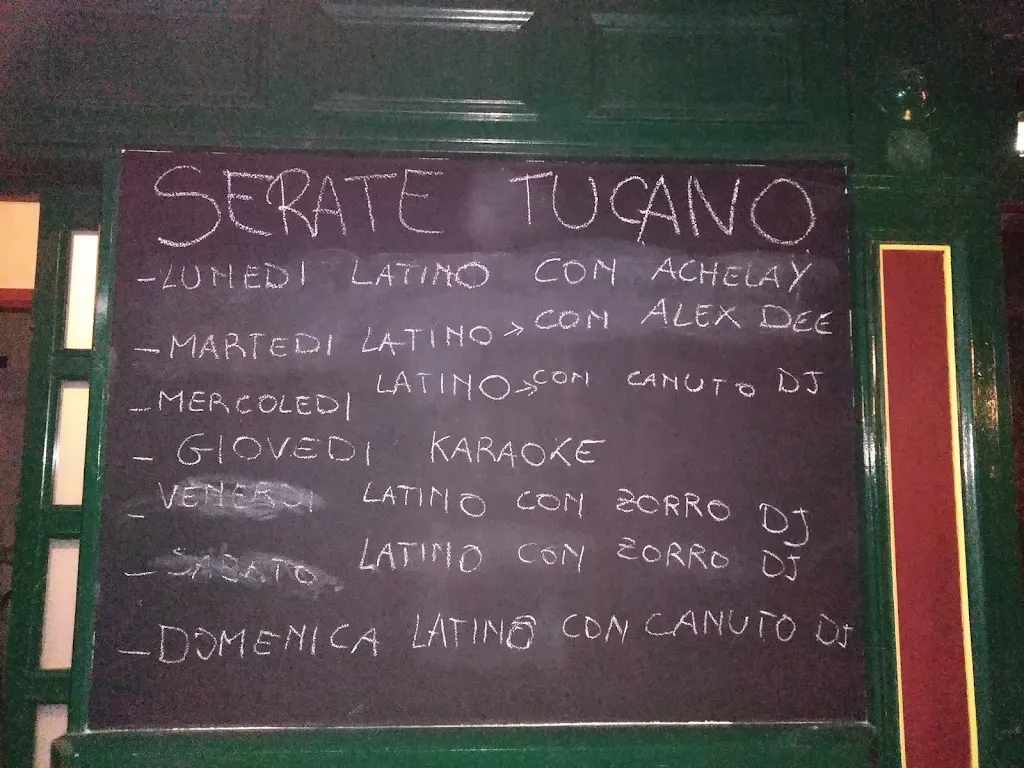 SERATE TUCANO
- LUNEDI LATINO CON ACHELAY
- MARTEDI LATINO → CON ALEX DEE
- MERCOLEDI LATINO → CON CANUTO DJ
- GIOVEDI KARAOKE
- VENERDI LATINO CON ZORRO DJ
- SABATO LATINO CON ZORRO DJ
- DOMENICA LATINO CON CANUTO DJ